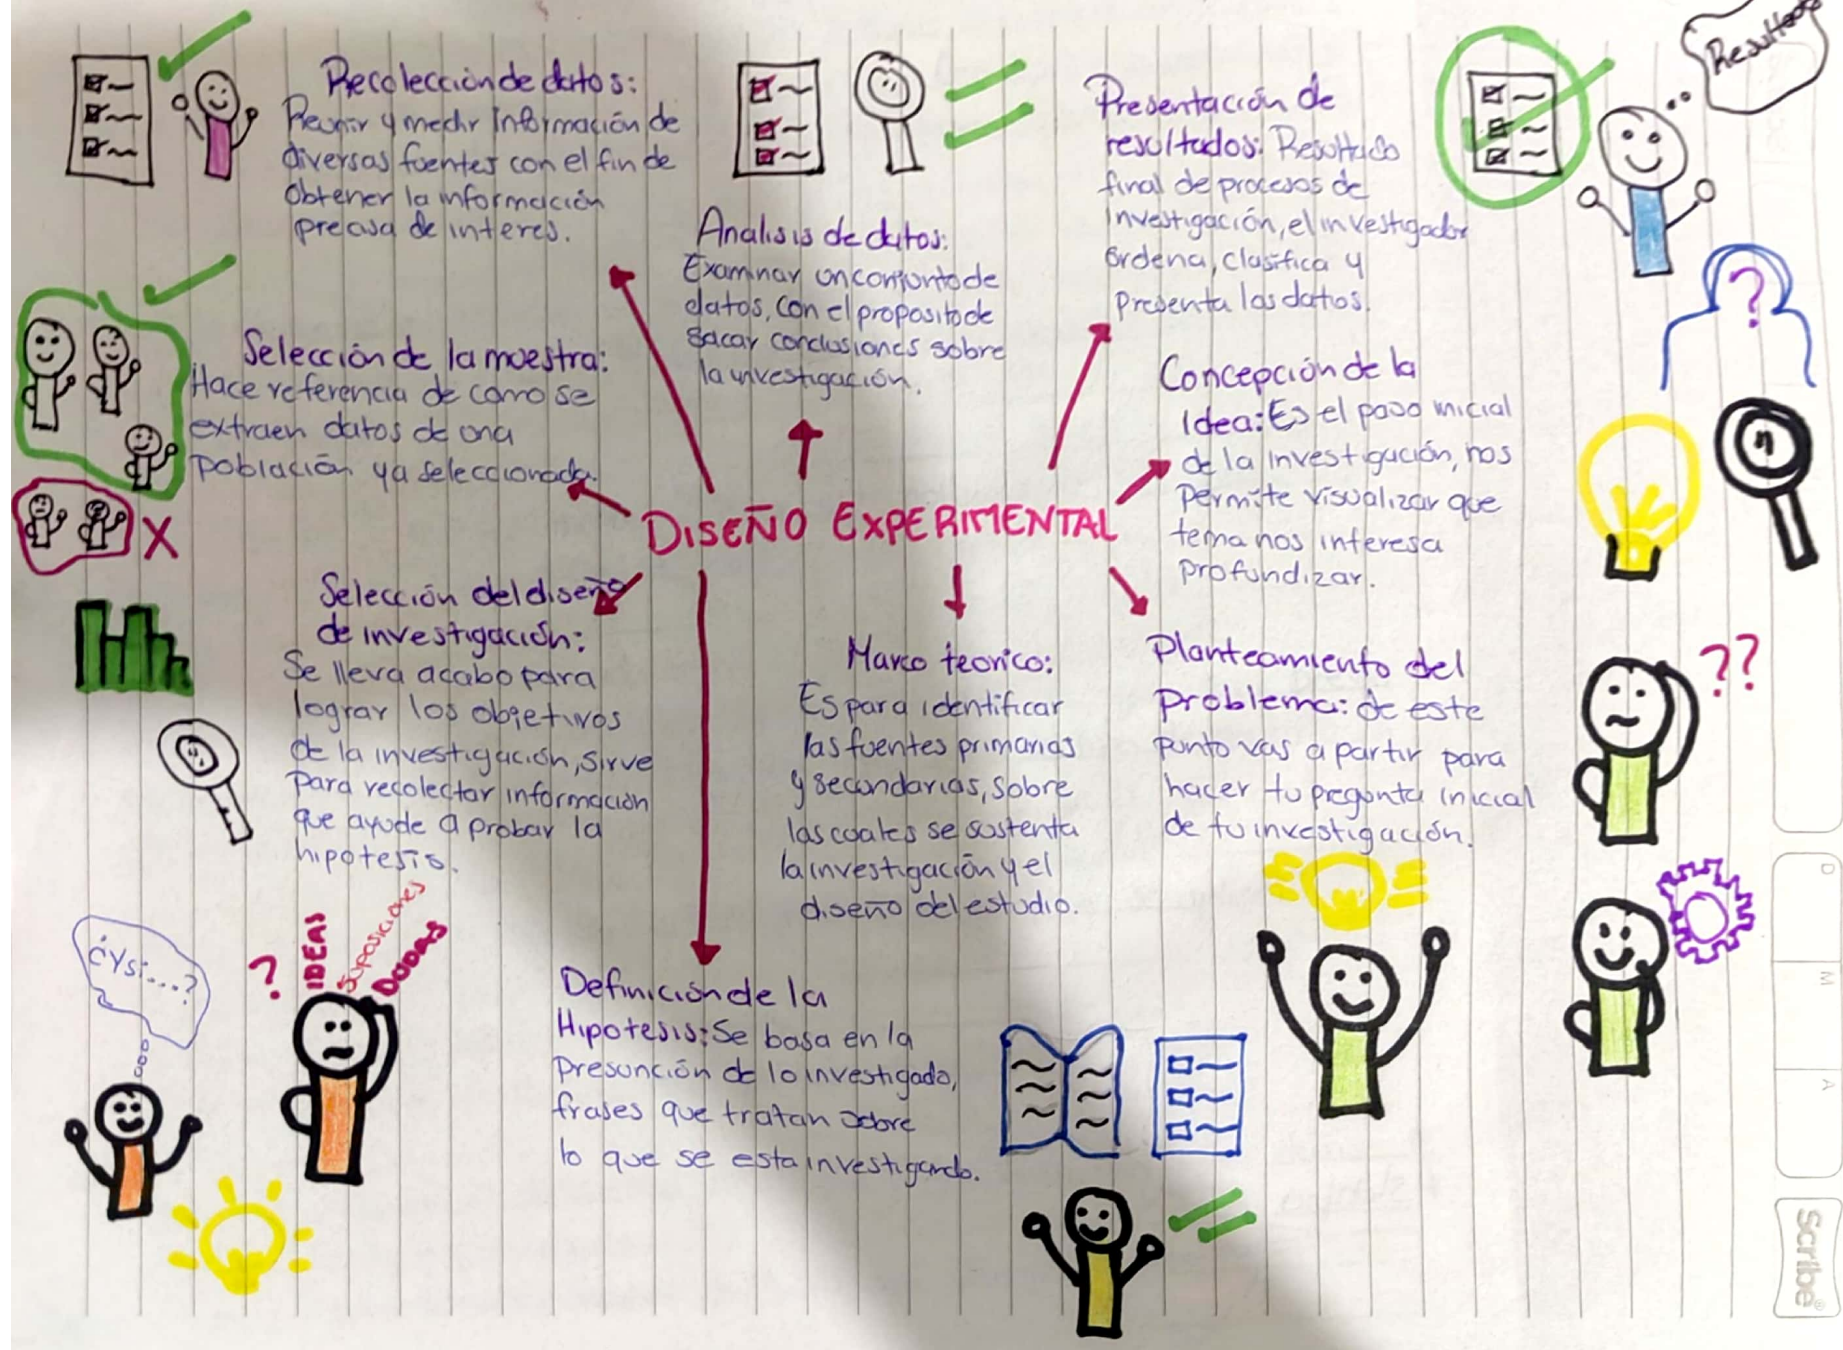 Recolección de datos:
Reunir y medir información de
diversas fuentes con el fin de
obtener la información
precisa de interes.
Analisis de datos:
Examinar un conjunto de
datos, con el proposito de
sacar conclusiones sobre
la investigación.
Presentación de
resultados: Resultado
final de procesos de
investigación, el investigador
ordena, clasifica y
presenta los datos.
Resultados
?
Selección de la muestra:
Hace referencia de como se
extraen datos de una
población ya seleccionada.
X
Concepción de la
Idea: Es el paso inicial
de la investigación, nos
permite visualizar que
tema nos interesa
profundizar.
DISEÑO EXPERIMENTAL
Selección del diseño
de investigación:
Se lleva acabo para
lograr los objetivos
de la investigación, sirve
para recolectar información
que ayude a probar la
hipotesis.
Marco teorico:
Es para identificar
las fuentes primarias
y secundarias, sobre
las cuales se sustenta
la investigación y el
diseño del estudio.
Planteamiento del
Problema: de este
punto vas a partir para
hacer tu pregunta inicial
de tu investigación.
??
¿Y si...?
?
IDEAS
Suposiciones
DUDAS
Definición de la
Hipotesis: Se basa en la
presunción de lo investigado,
frases que tratan sobre
lo que se esta investigando.
D
M
A
Scribe®